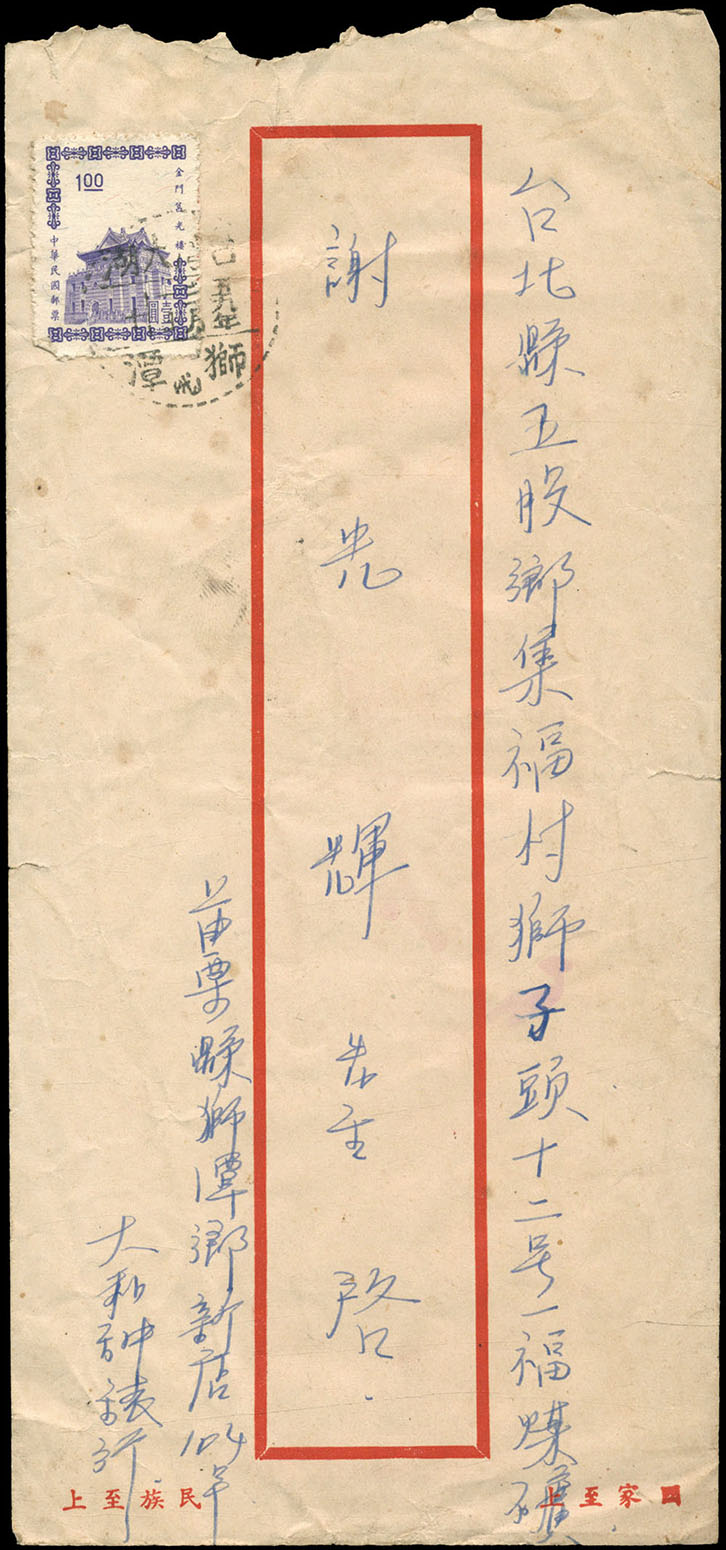 台北縣五股鄉集福村獅子頭十二号一福煤礦
謝光輝先生啓
苗栗縣獅潭鄉新店104号
大利鐘錶行
1.00
金門莒光樓
中華民國郵票
壹圓
獅潭
大湖
國家至上
民族至上